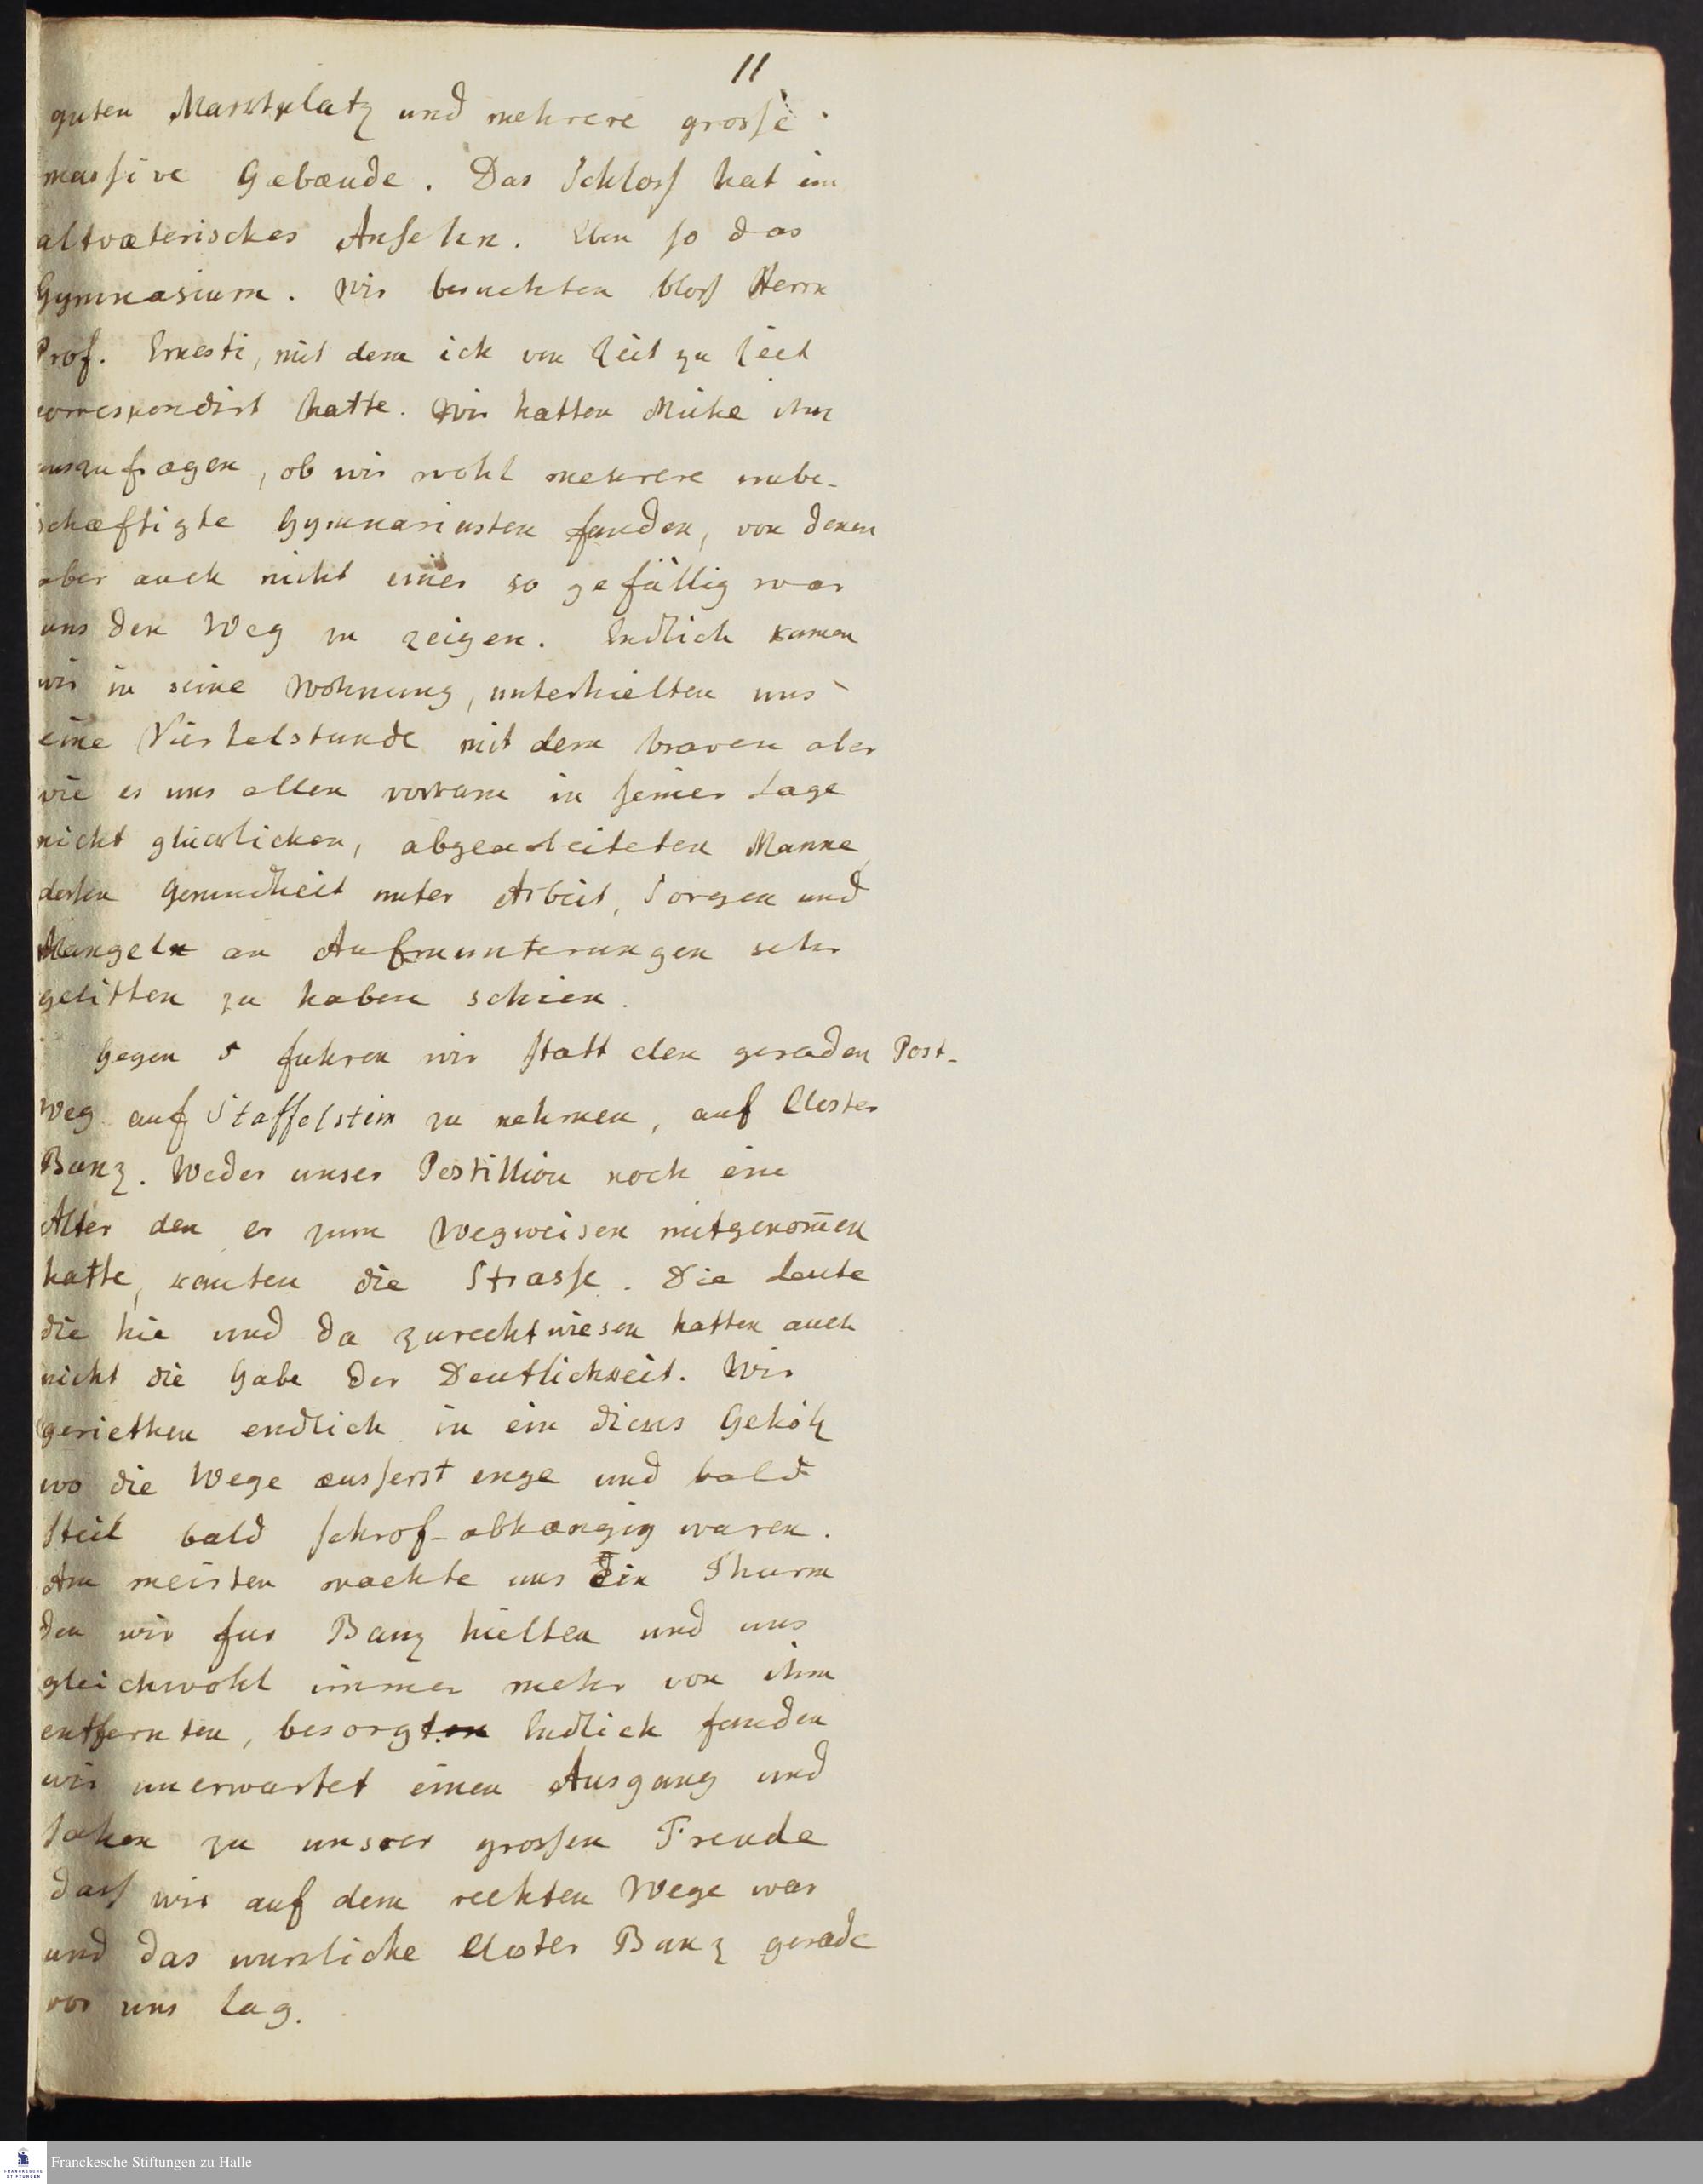 11
guten Marktplatz und mehrere grosse
massive Gebæude. Das Schloss hat ein
altvæterisches Ansehn. Eben so das
Gymnasium. Wir besuchten bloss Herrn
Prof. Ernesti, mit dem ich von Zeit zu Zeit
correspondirt hatte. Wir hatten Mühe ihn
auszufragen, ob wir wohl mehrere unbe-
schæftigte Gymnasiasten fanden, von denen
aber auch nicht einer so gefällig war
uns den Weg zu zeigen. Endlich kamen
wir in seine Wohnung, unterhielten uns
eine Viertelstunde mit dem braven aber
wie es uns allen vorkam in seiner Lage
nicht glücklichen, abgearbeiteten Manne,
dessen Gesundheit unter Arbeit, Sorgen und
Mangel an Aufmunterungen sehr
gelitten zu haben schien.
Gegen 5 fuhren wir statt den geraden Post-
Weg auf Staffelstein zu nehmen, auf Closter
Banz. Weder unser Postillion noch ein
Alter den er zum Wegweisen mitgenom̄en
hatte, kanten die Strasse. Die Leute
die hie und da zurechtwiesen hatten auch
nicht die Gabe der Deutlichkeit. Wir
geriethen endlich in ein dickes Gehölz
wo die Wege æusserst enge und bald
steil bald schrof-abhængig waren.
Am meisten machte uns ein Thurm
den wir fur Banz hielten und uns
gleichwohl immer mehr von ihm
entfernten, besorgt. Endlich fanden
wir unerwartet einen Ausgang und
sahen zu unsrer grossen Freude
dass wir auf dem rechten Wege war
und das würkliche Closter Banz gerade
vor uns lag.
Franckesche Stiftungen zu Halle
FRANCKESCHE
STIFTUNGEN